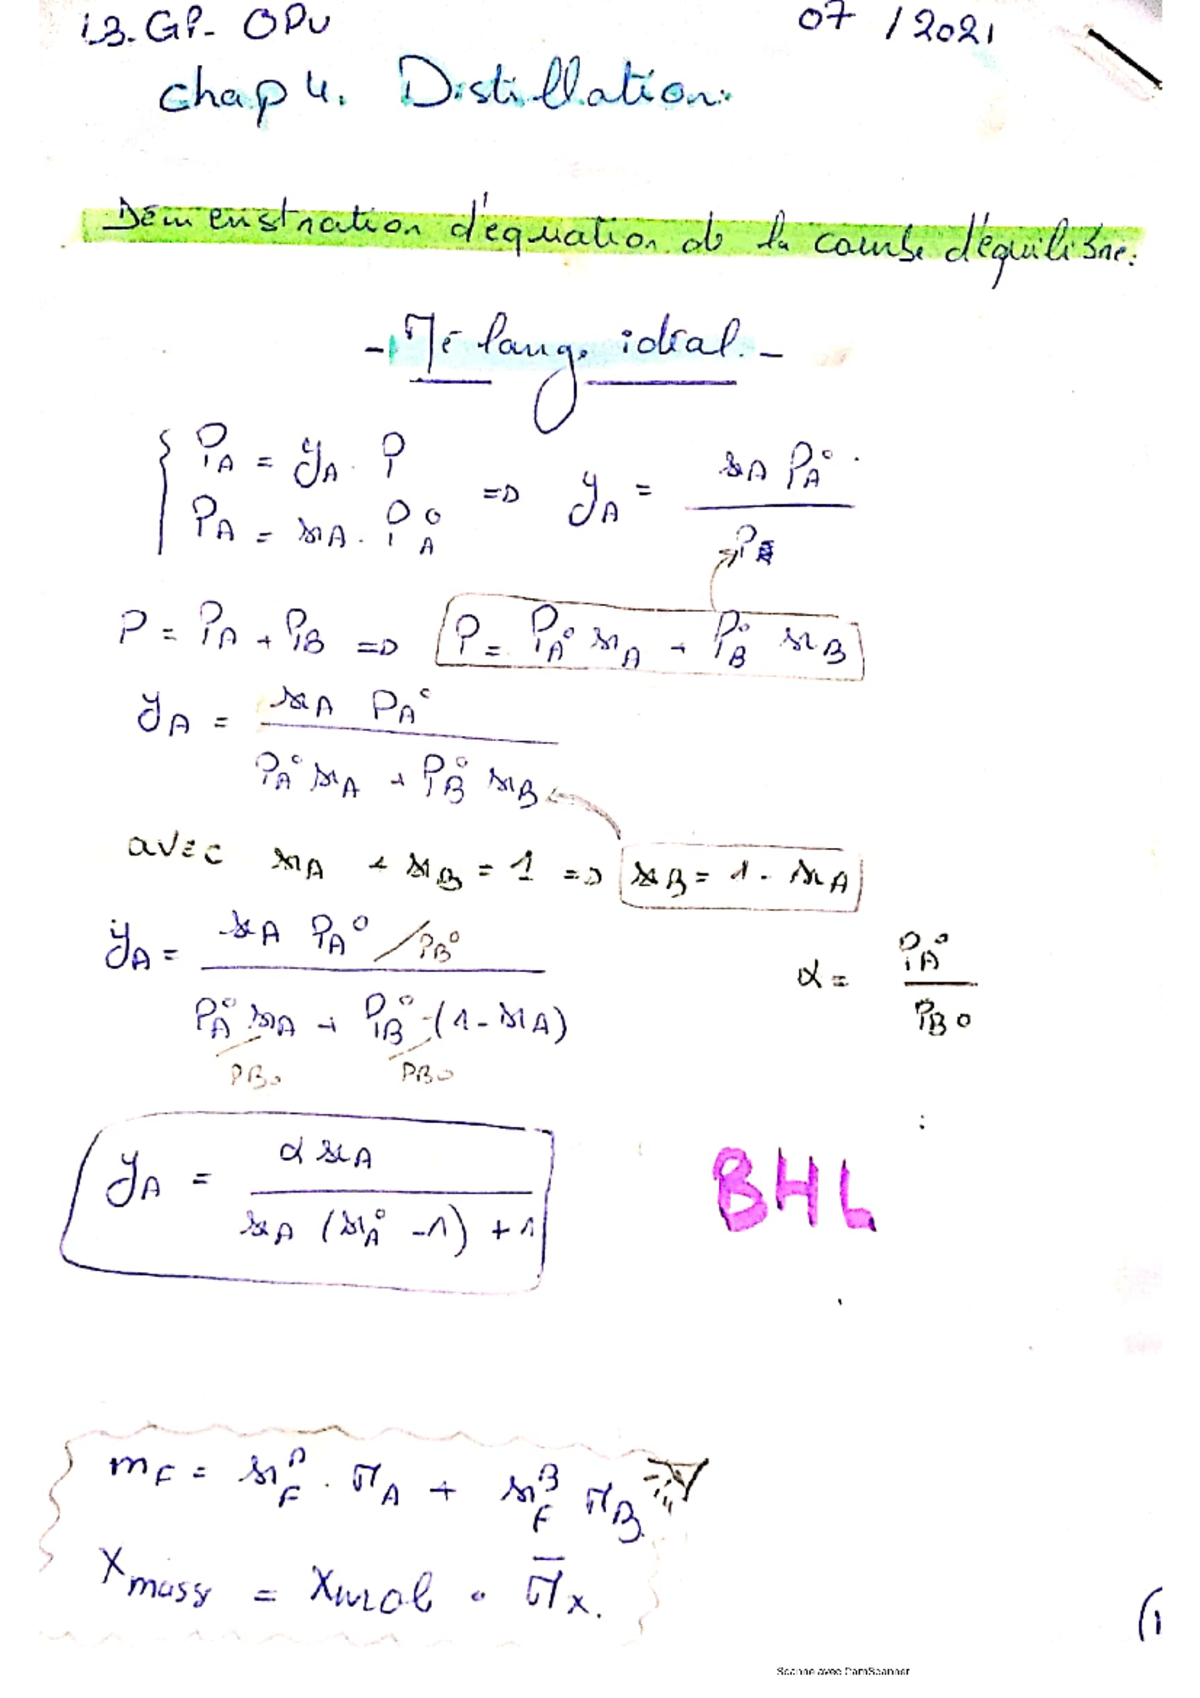 L3. GP. OPU 07 / 2021
chap 4. Distillation.
Démenstration d'equation de la courbe d'équilibre:
- Mélange idéal. -
{ PA = yA . P
PA = xA . P°A => yA = xA PA° / P
P = PA + PB => P = PA° xA + PB° xB
yA = xA PA° / PA° xA + PB° xB
avec xA + xB = 1 => xB = 1 - xA
yA = xA PA° / PB° α = PA° / PB°
PA° xA + PB° (1 - xA)
PB° PB°
yA = α xA / xA (xA° - 1) + 1
BHL
mF = xF^A . MA + xF^B MB
Xmass = Xmol . M̄x.
(1
Scanné avec CamScanner